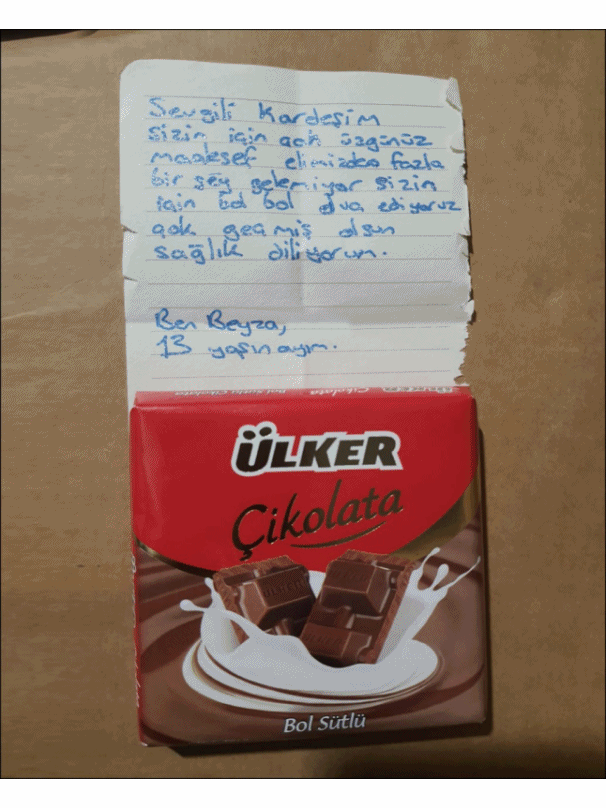 Sevgili Kardeşim
sizin için çok üzgünüz
maalesef elimizden fazla
bir şey gelemiyor sizin
için bol bol dua ediyoruz
çok geçmiş olsun
sağlık diliyorum.
Ben Beyza,
13 yaşınayım.
Bol Sütlü Çikolata
ÜLKER
Çikolata
ÜLKER
ÜLKER
Bol Sütlü